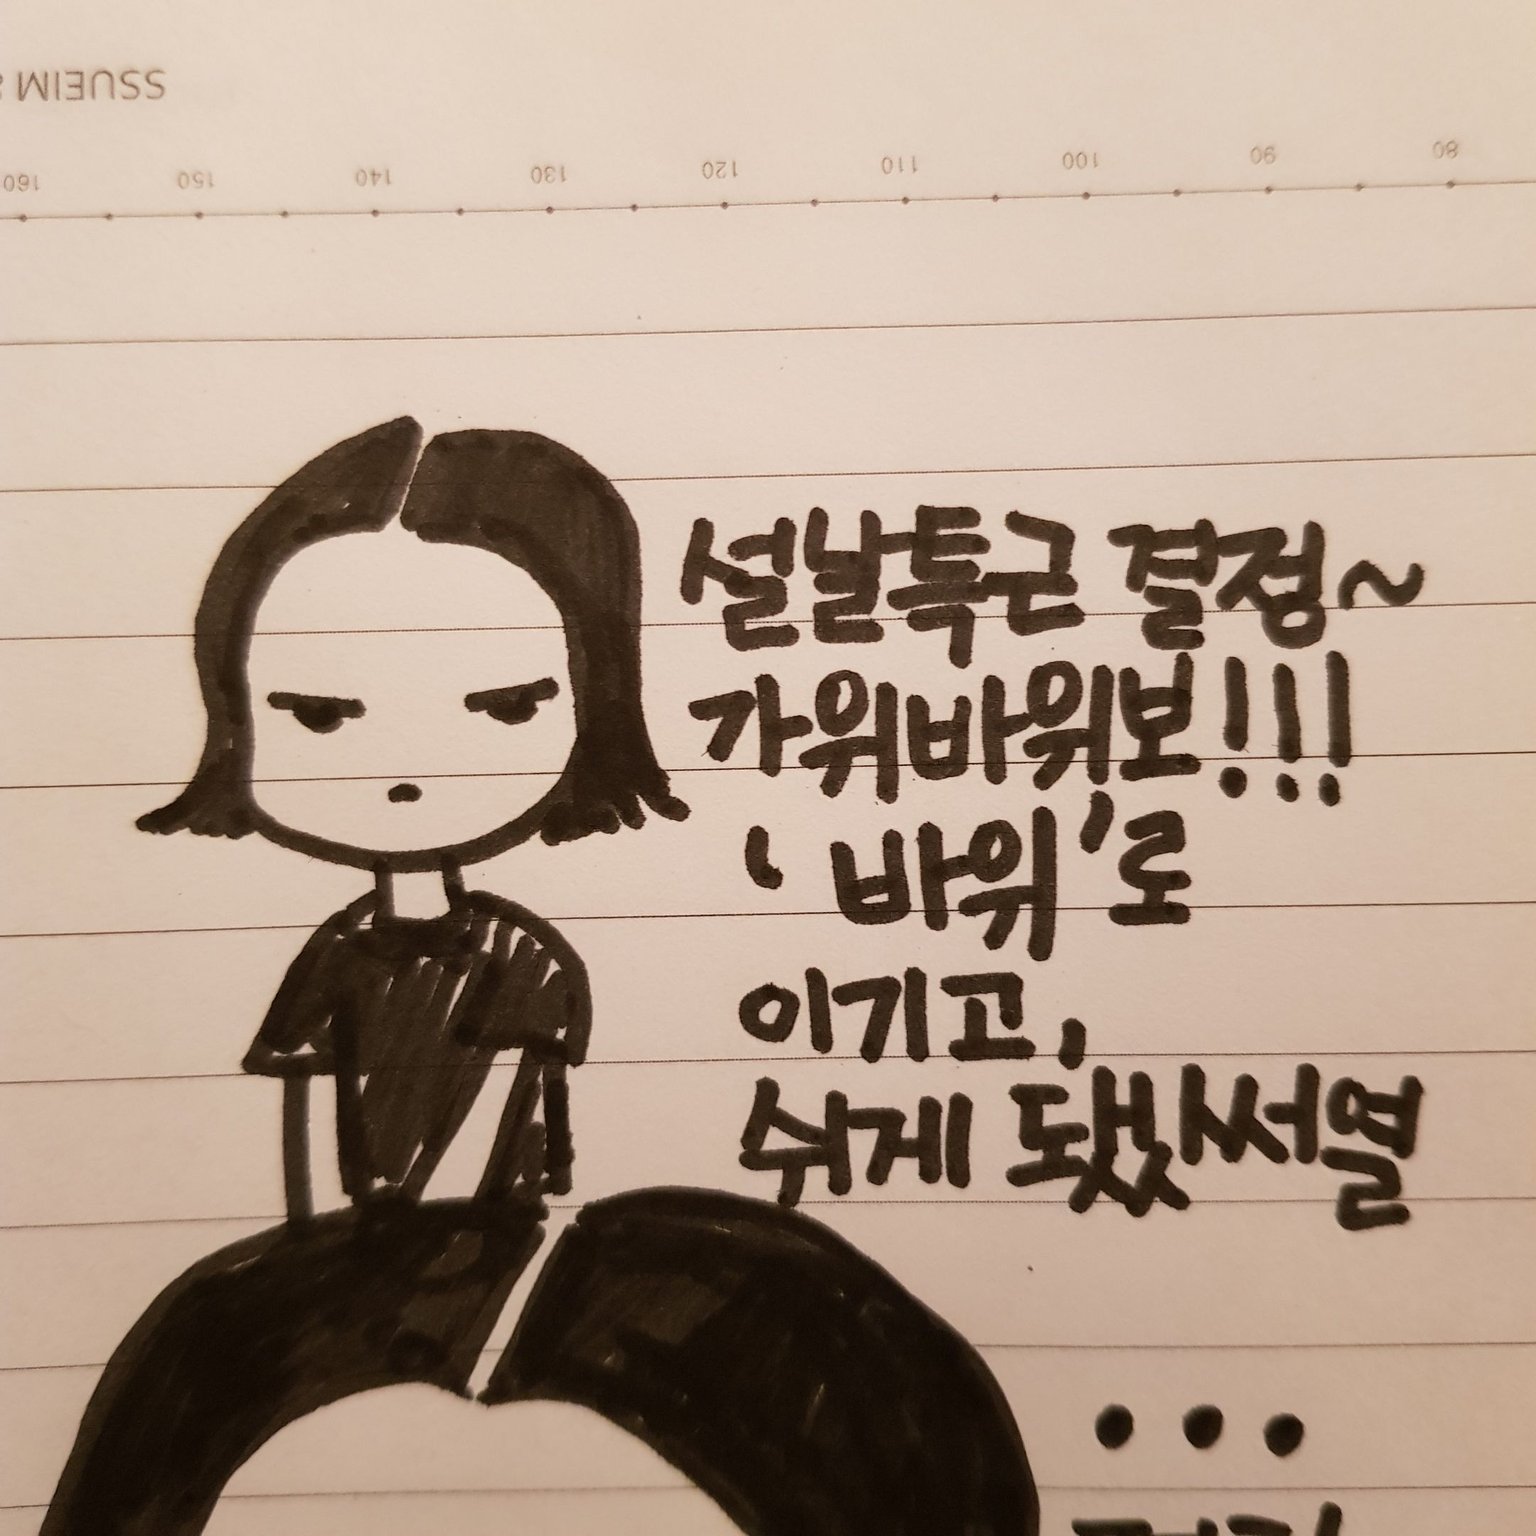 SSUEIM &
160 150 140 130 120 110 100 90 80
설날특근 결정~
가위바위보!!!
‘바위’로
이기고,
쉬게 됐써열
...